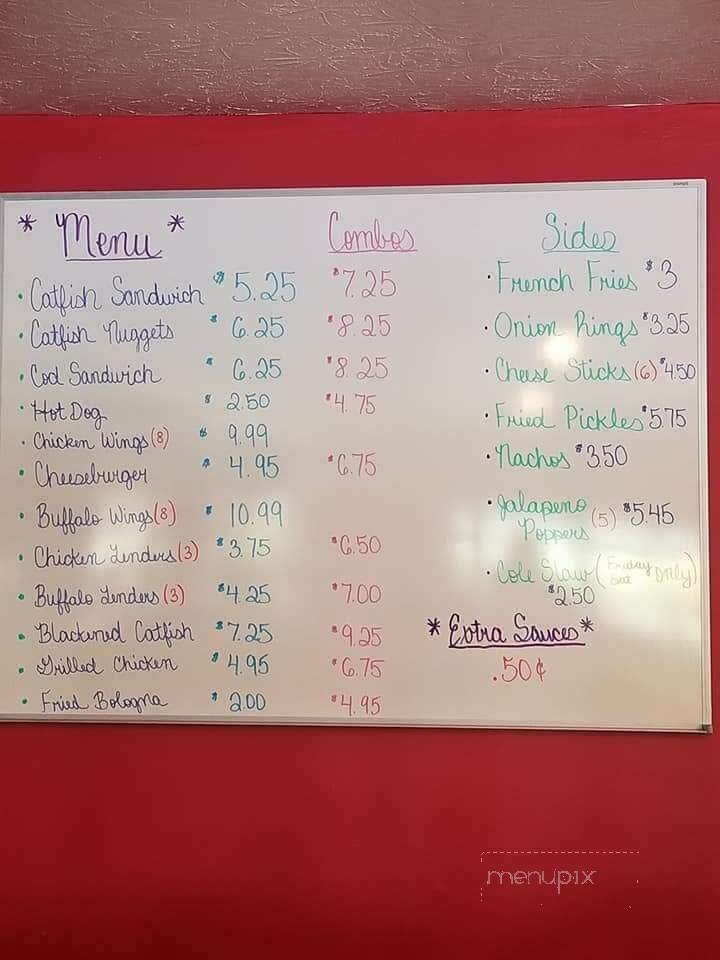 * Menu *
Combos
Sides
• Catfish Sandwich $ 5.25 $7.25
• Catfish Nuggets $ 6.25 $8.25
• Cod Sandwich $ 6.25 $8.25
• Hot Dog $ 2.50 $4.75
• Chicken Wings (8) $ 9.99
• Cheeseburger $ 4.95 $6.75
• Buffalo Wings (8) $ 10.99
• Chicken Tenders (3) $3.75 $6.50
• Buffalo Tenders (3) $4.25 $7.00
• Blackened Catfish $7.25 $9.25
• Grilled Chicken $ 4.95 $6.75
• Fried Bologna $ 2.00 $4.95
• French Fries $3
• Onion Rings $3.25
• Cheese Sticks (6) $4.50
• Fried Pickles $5.75
• Nachos $3.50
• Jalapeno
Poppers (5) $5.45
• Cole Slaw (Friday
Sat only)
$2.50
* Extra Sauces *
.50¢
menupix